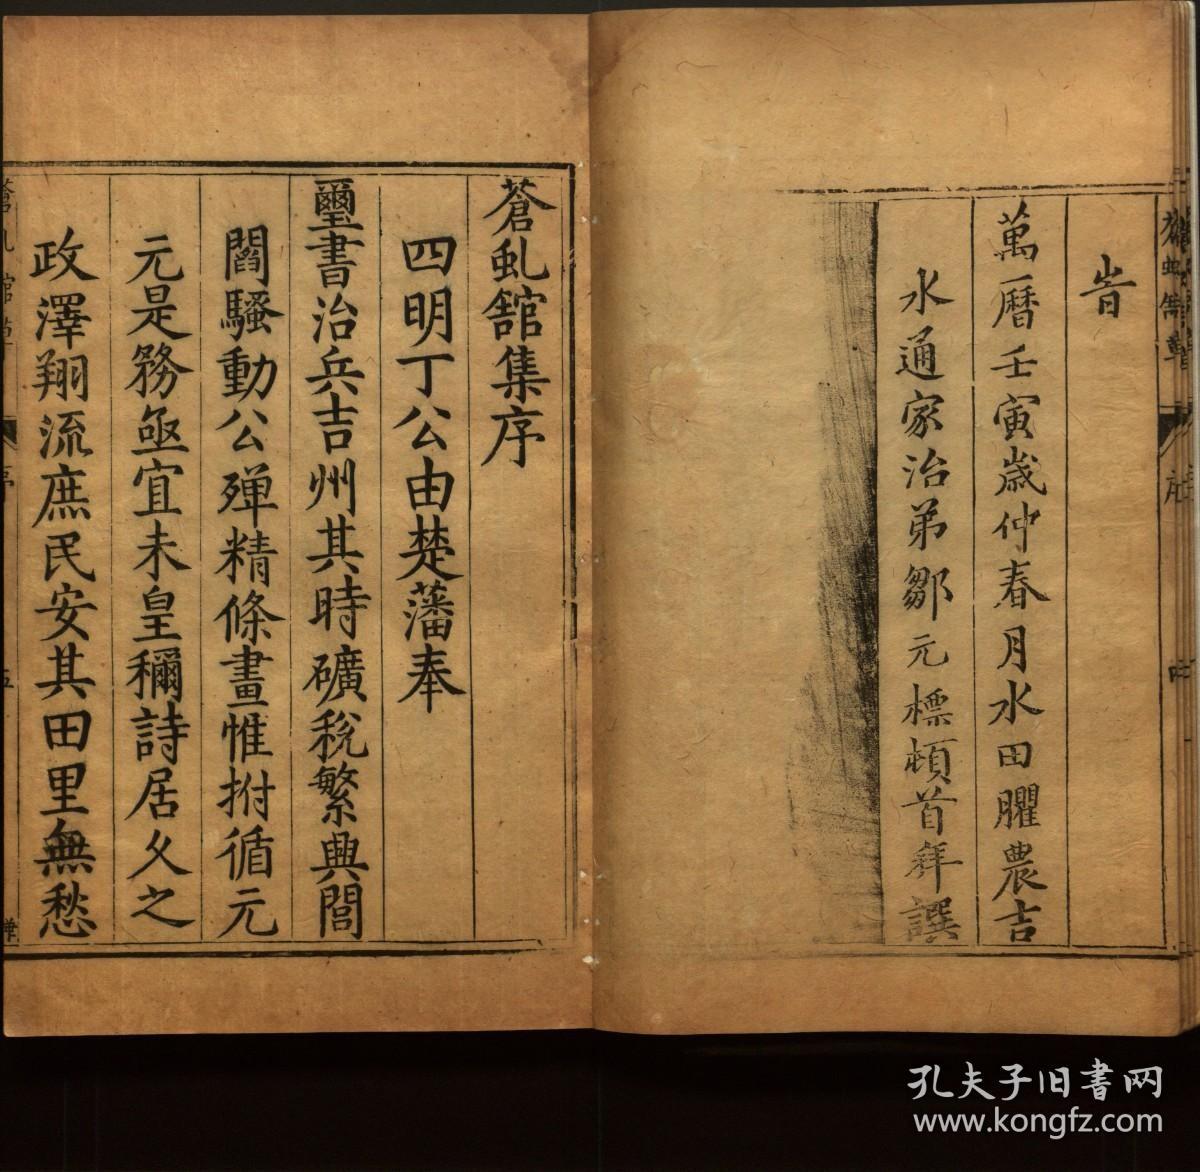 旹
萬曆壬寅歲仲春月水田臞農吉
水通家治弟鄒元標頓首拜譔
蒼虬館集序
四明丁公由楚藩奉
璽書治兵吉州其時礦稅繁興閭
閻騷動公殫精條畫惟拊循元
元是務亟宜未皇穪詩居久之
政澤翔流庶民安其田里無愁
蒼虬館集
序
五
孔夫子旧书网
www.kongfz.com